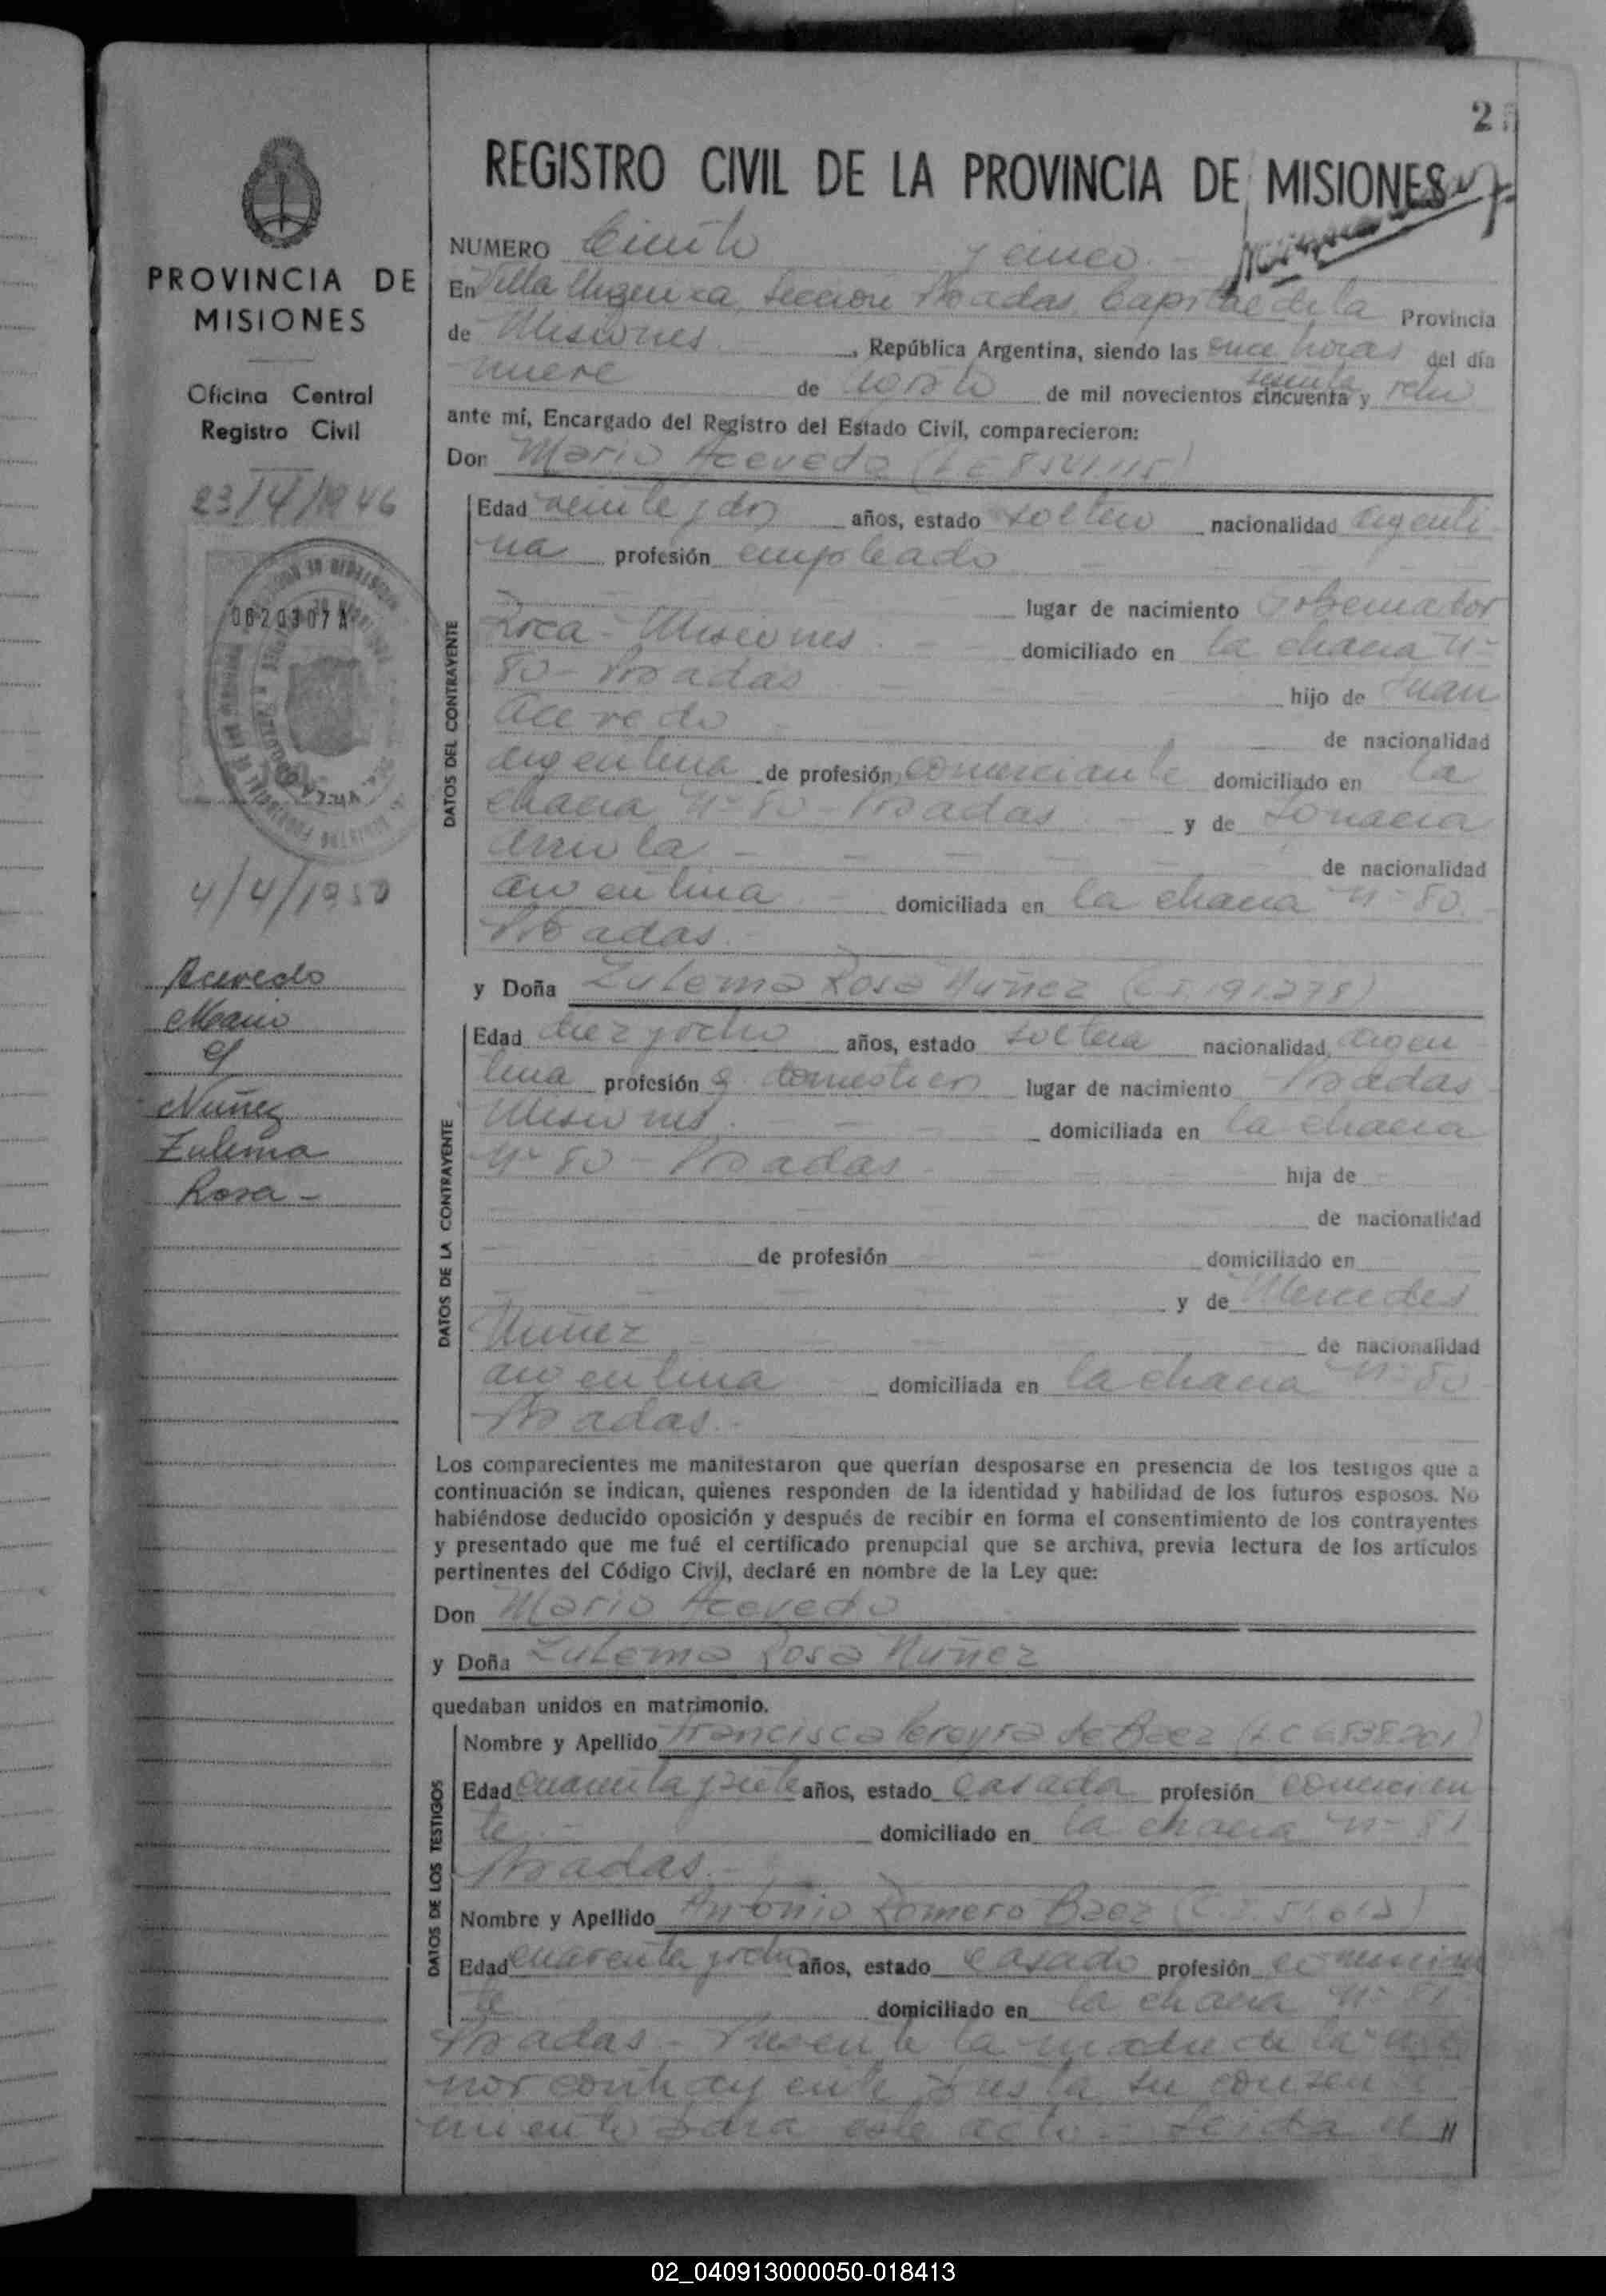 2
REGISTRO CIVIL DE LA PROVINCIA DE MISIONES
PROVINCIA DE
MISIONES
Oficina Central
Registro Civil
23/IV/1946
0620307 A
4/4/1950
Acevedo
Mario
y
Nuñez
Zulema
Rosa -
NUMERO Ciento y cinco -
En Villa Urquiza, Sección Posadas, Capital de la Provincia
de Misiones , República Argentina, siendo las once horas del día
nueve de agosto de mil novecientos cincuenta sesenta y
ante mí, Encargado del Registro del Estado Civil, comparecieron:
Don Mario Acevedo
DATOS DEL CONTRAYENTE
Edad veinte y dos años, estado soltero nacionalidad argenti
na profesión empleado
lugar de nacimiento Gobernador
Roca - Misiones - domiciliado en la chacra Nº
80 - Posadas hijo de Juan
Acevedo de nacionalidad
argentina de profesión comerciante domiciliado en la
chacra Nº 80 - Posadas y de
de nacionalidad
argentina domiciliada en la chacra Nº 80
Posadas -
y Doña Zulema Rosa Nuñez (C.I. 191.278)
DATOS DE LA CONTRAYENTE
Edad diez y ocho años, estado soltera nacionalidad argen
tina profesión q. domésticos lugar de nacimiento Posadas
Misiones - domiciliada en la chacra
Nº 80 Posadas - hija de
de nacionalidad
de profesión domiciliado en
y de Mercedes
Nuñez de nacionalidad
argentina domiciliada en la chacra Nº 80
Posadas -
Los comparecientes me manifestaron que querían desposarse en presencia de los testigos que a
continuación se indican, quienes responden de la identidad y habilidad de los futuros esposos. No
habiéndose deducido oposición y después de recibir en forma el consentimiento de los contrayentes
y presentado que me fué el certificado prenupcial que se archiva, previa lectura de los artículos
pertinentes del Código Civil, declaré en nombre de la Ley que:
Don Mario Acevedo
y Doña Zulema Rosa Nuñez
quedaban unidos en matrimonio.
DATOS DE LOS TESTIGOS
Nombre y Apellido Francisca Pereyra de Baez (L C 6838201)
Edad cuarenta y siete años, estado casada profesión comercian
te - domiciliado en la chacra Nº 81
Posadas -
Nombre y Apellido Antonio Romero Baez
Edad cuarenta y ocho años, estado casado profesión comercian
te domiciliado en la chacra Nº 81
Posadas - Presente la madre de la me
nor contrayente presta su consenti
miento para este acto - Leída el //
02_040913000050-018413